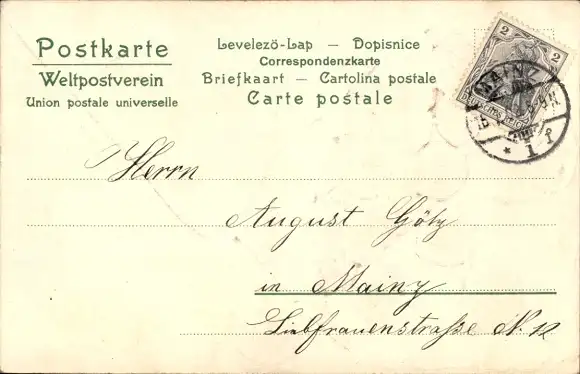 Postkarte
Weltpostverein
Union postale universelle
Levelezö-Lap — Dopisnice
Correspondenzkarte
Briefkaart — Cartolina postale
Carte postale
2 2
MAINZ
* 1 f
Herrn
August Götz
in Mainz
Liebfrauenstraße N. 12